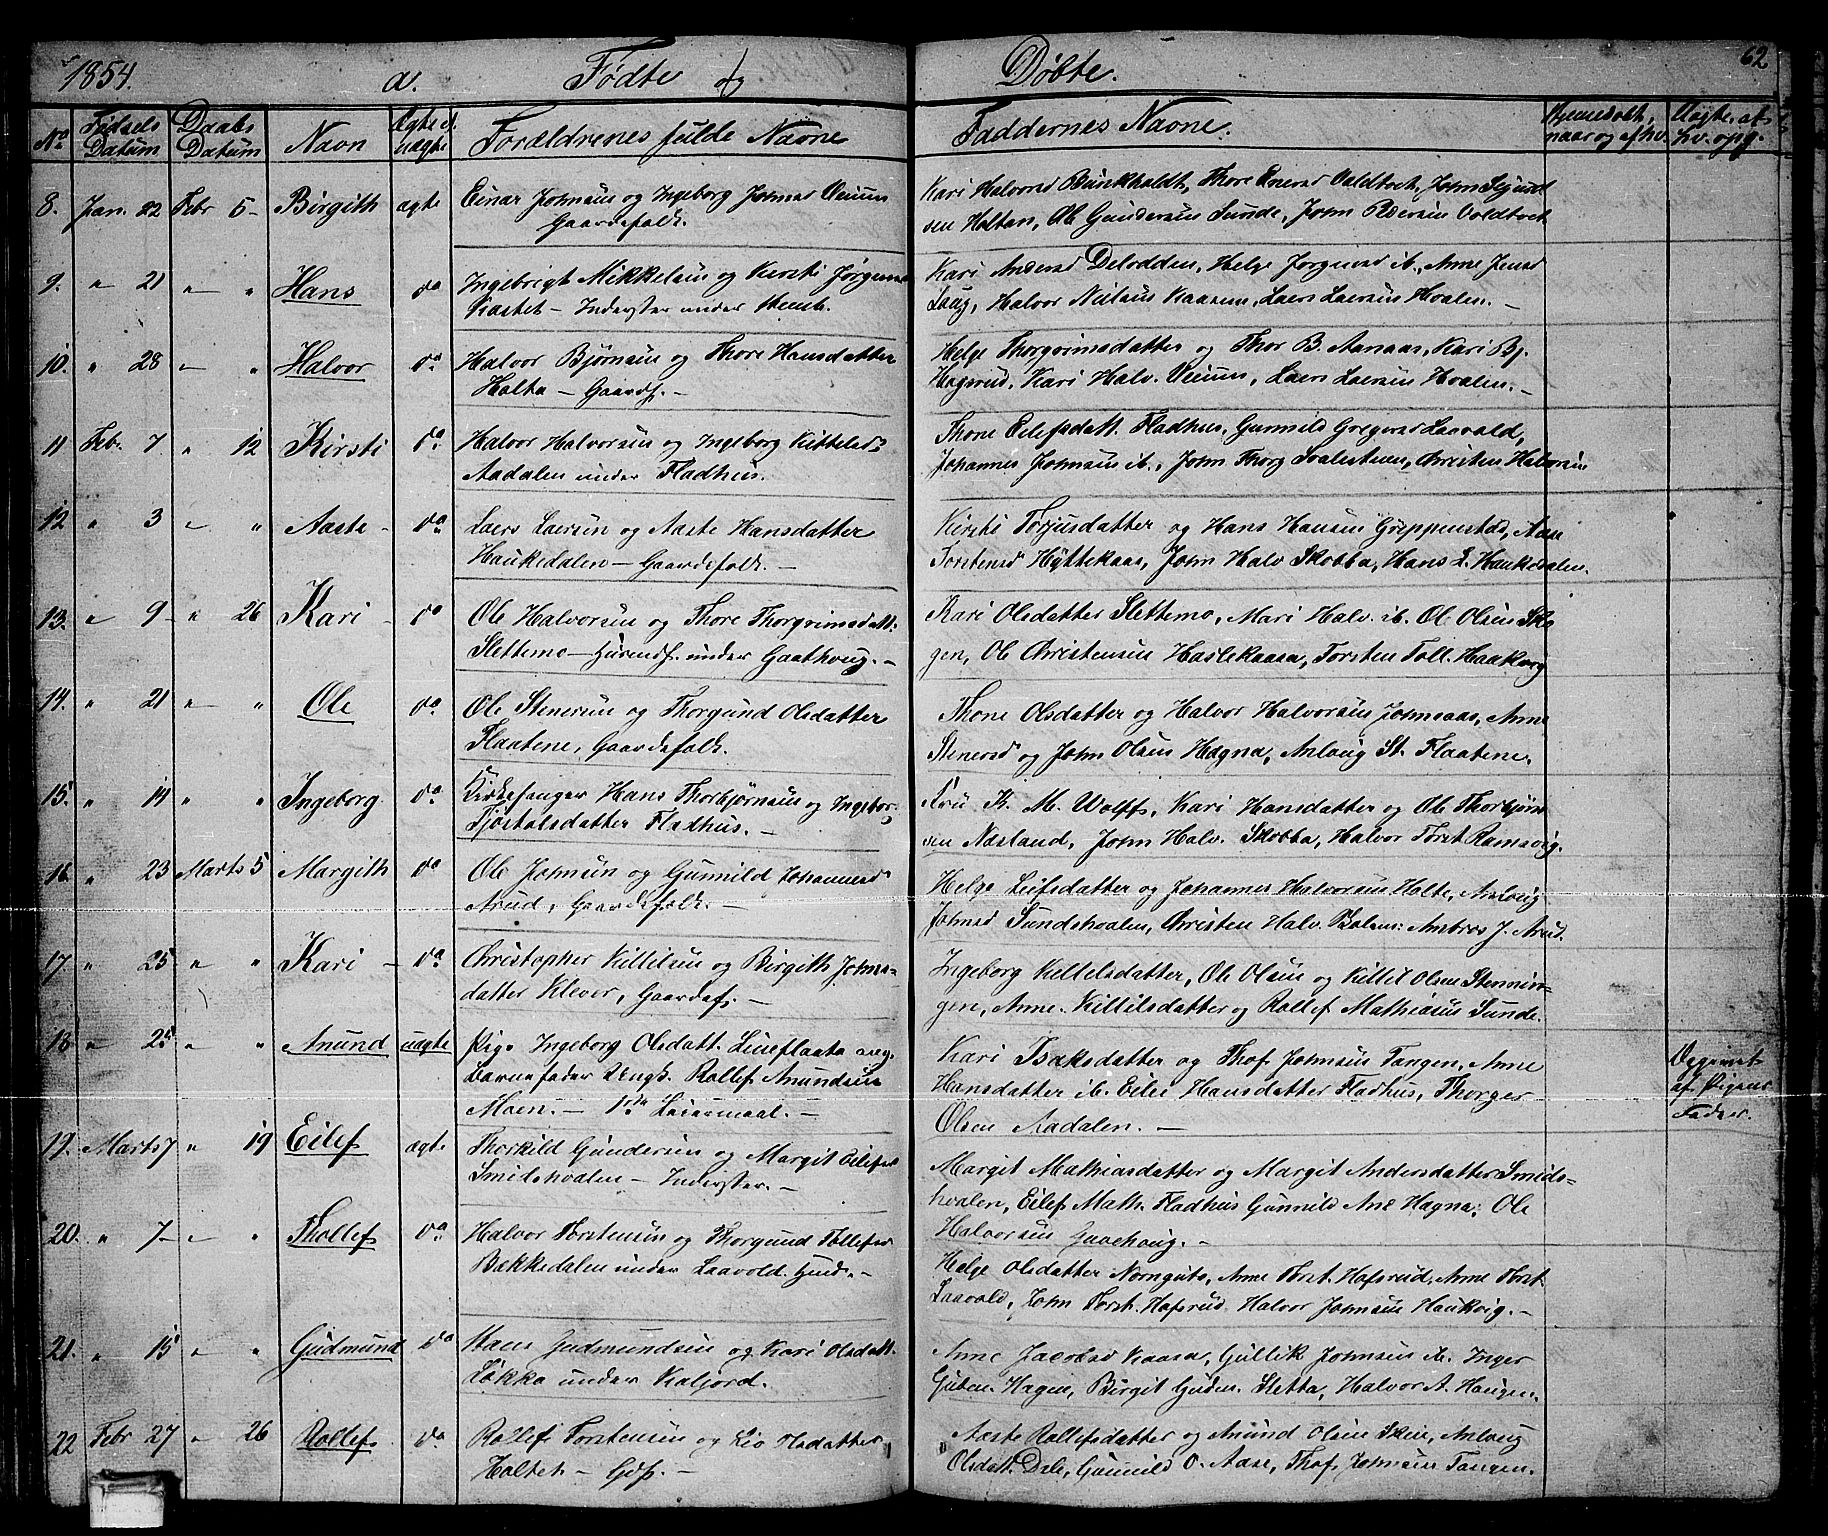 1854. a. Fødte og Døbte. 62
No Fødsels Datum Daabs Datum Navn Ægte el. uægte Forældrenes fulde Navne Faddernes Navne. Hjemedøbt, naar og af hv. Uægte, af hv. opg.
8. Jan. 22 Febr 5 Birgith ægte Einar Johnsen og Ingeborg Johnsd
Gaardefolk.
Kari Halvorsd Bunkholdt, Thore Enersd Voldtvet, John Sigurd
sen Holtan, Ole Gundersen Sunde, John Voldtvet
9. " 21 " " Hans do Ingebrigt Mikkelsen og Kirsti Jørgensd
Kastet – Inderster under
Kari Andersd Delodden, Helge Jorgensd ib., Anne Jensd
Haug, Halvor Nielsen Kaasene, Laers Laersen Hvalen. –
10. " 28 " " Halvor do Halvor Bjørnsen og Thore Hansdatter
Holta – Gaardf. –
Helge Thorgrimsdatter og Thor B. Aanaas, Kari Bj.
Hogsrud, Kari Halv. Laers Laersen Hvalen. –
11 Feb. 7. " 12 Kirsti do Halvor Halvorsen og Ingeborg Kittelsd
Aadalen under Fladhus.
Thone Eilefsdatt. Fladhus, Gunnild Gregersd Laavald,
Johannes Johnsen ib., John Thorg Christen Halvorsen
12 " 3 " " Aaste do Laers Laersen og Aaste Hansdatter
Haukedalen – Gaardefolk. –
Kirsti Torjusdatter og Hans Hansen Grippenstad, Aase
Torstensd Hyttekaas, John Halv Skobba, Hans L. Haukedalen.
13. " 9 " 26 Kari do Ole Halvorsen og Thore Thorgrimsdatt.
Slettemo – Huusmf. under Gaathoug. –
Kari Olsdatter Slettemo, Mari Halv. ib. Ole Olsen Sko
gen, Ole Christensen Haslekaasa, Torsten Toll. Haukvig
14. " 21 " " Ole do Ole Stenersen og Thorgund Olsdatter
Flaatene, Gaardefolk.
Thone Olsdatter og Halvor Halvorsen Johnsaas, Anne
Stenersd og John Olsen Hagna, Anlaug St. Flaatene.
15. " 14 " " Ingeborg do Kirkesanger Hans Thorbjørnsen og Ingeborg
Tjostolsdatter Fladhus. –
Fru K. M. Wolff, Kari Hansdatter og Ole Thorbjørn
sen Næsland, John Halv. Skobba, Halvor Torst Ramsvig.
16. " 23 Marts 5 Margith do Ole Johnsen og Gunnild Johannesd
Aarud, Gaardefolk. –
Helge Leifsdatter og Johannes Halvorsen Holte, Anlaug
Johnsd Sundshvalen, Christen Halv. Ambros J. Arud.
17. " 25 " " Kari – do Christopher Kittilsen og Birgith Johns-
datter Klever, Gaardef. –
Ingeborg Kittelsdatter, Ole Olsen og Kittil Olsen Stennin-
gen, Anne Kittilsdatter og Rollef Mathiasen Sunde.
18 " 25 " " Anund uægte Pige Ingeborg Olsdatt. Lineflaata og
Barnefader Ungk. Rollef Anundsen
Moen. – 1ste Leiermaal. –
Kari Isaksdatter og Thof Johnsen Tangen, Anne
Hansdatter ib. Eilev Hansdatter Fladhus, Thorger
Olsen Aadalen. –
Opgivet
af Pigens
Fader.
19. Marts 7 " 19 Eilef ægte Thorkild Gundersen og Margit Eilefsd
Smidshvalen – Inderster. –
Margit Mathiasdatter og Margit Andersdatter Smids-
hvalen, Eilef Math. Fladhus Gunnild And Hagna; Ole
Halvorsen Gaaehoug. –
20. " 7 – " " Thollef do Halvor Torstensen og Thorgund Tollefsd
Bakkedalen under Laavold. Husm. –
Helge Olsdatter Nornguto, Anne Torst. Hofsrud, Anne Torst
Laavold, John Torst. Hofsrud. Halvor Johnsen Haukvig. –
21. " 15 " " Gudmund do Gudmundsen og Kari Olsdatt.
Løkka under Kaljord.
Anne Jacobsd Kaasa, Gullik Johnsen ib. Inger
Guten. Hagen, Birgit Gudm. Sletta, Halvor A. Haugen.
22 Febr 27 " 26 Rollef do Rollef Torstensen og Liv Olsdatter
Holtet – Gdf. –
Aaste Rollefsdatter og Anund Olsen Skeie, Anlaug
Olsdatt. Dale, Gunnild O. Aase, Thof Johnsen Tangen.